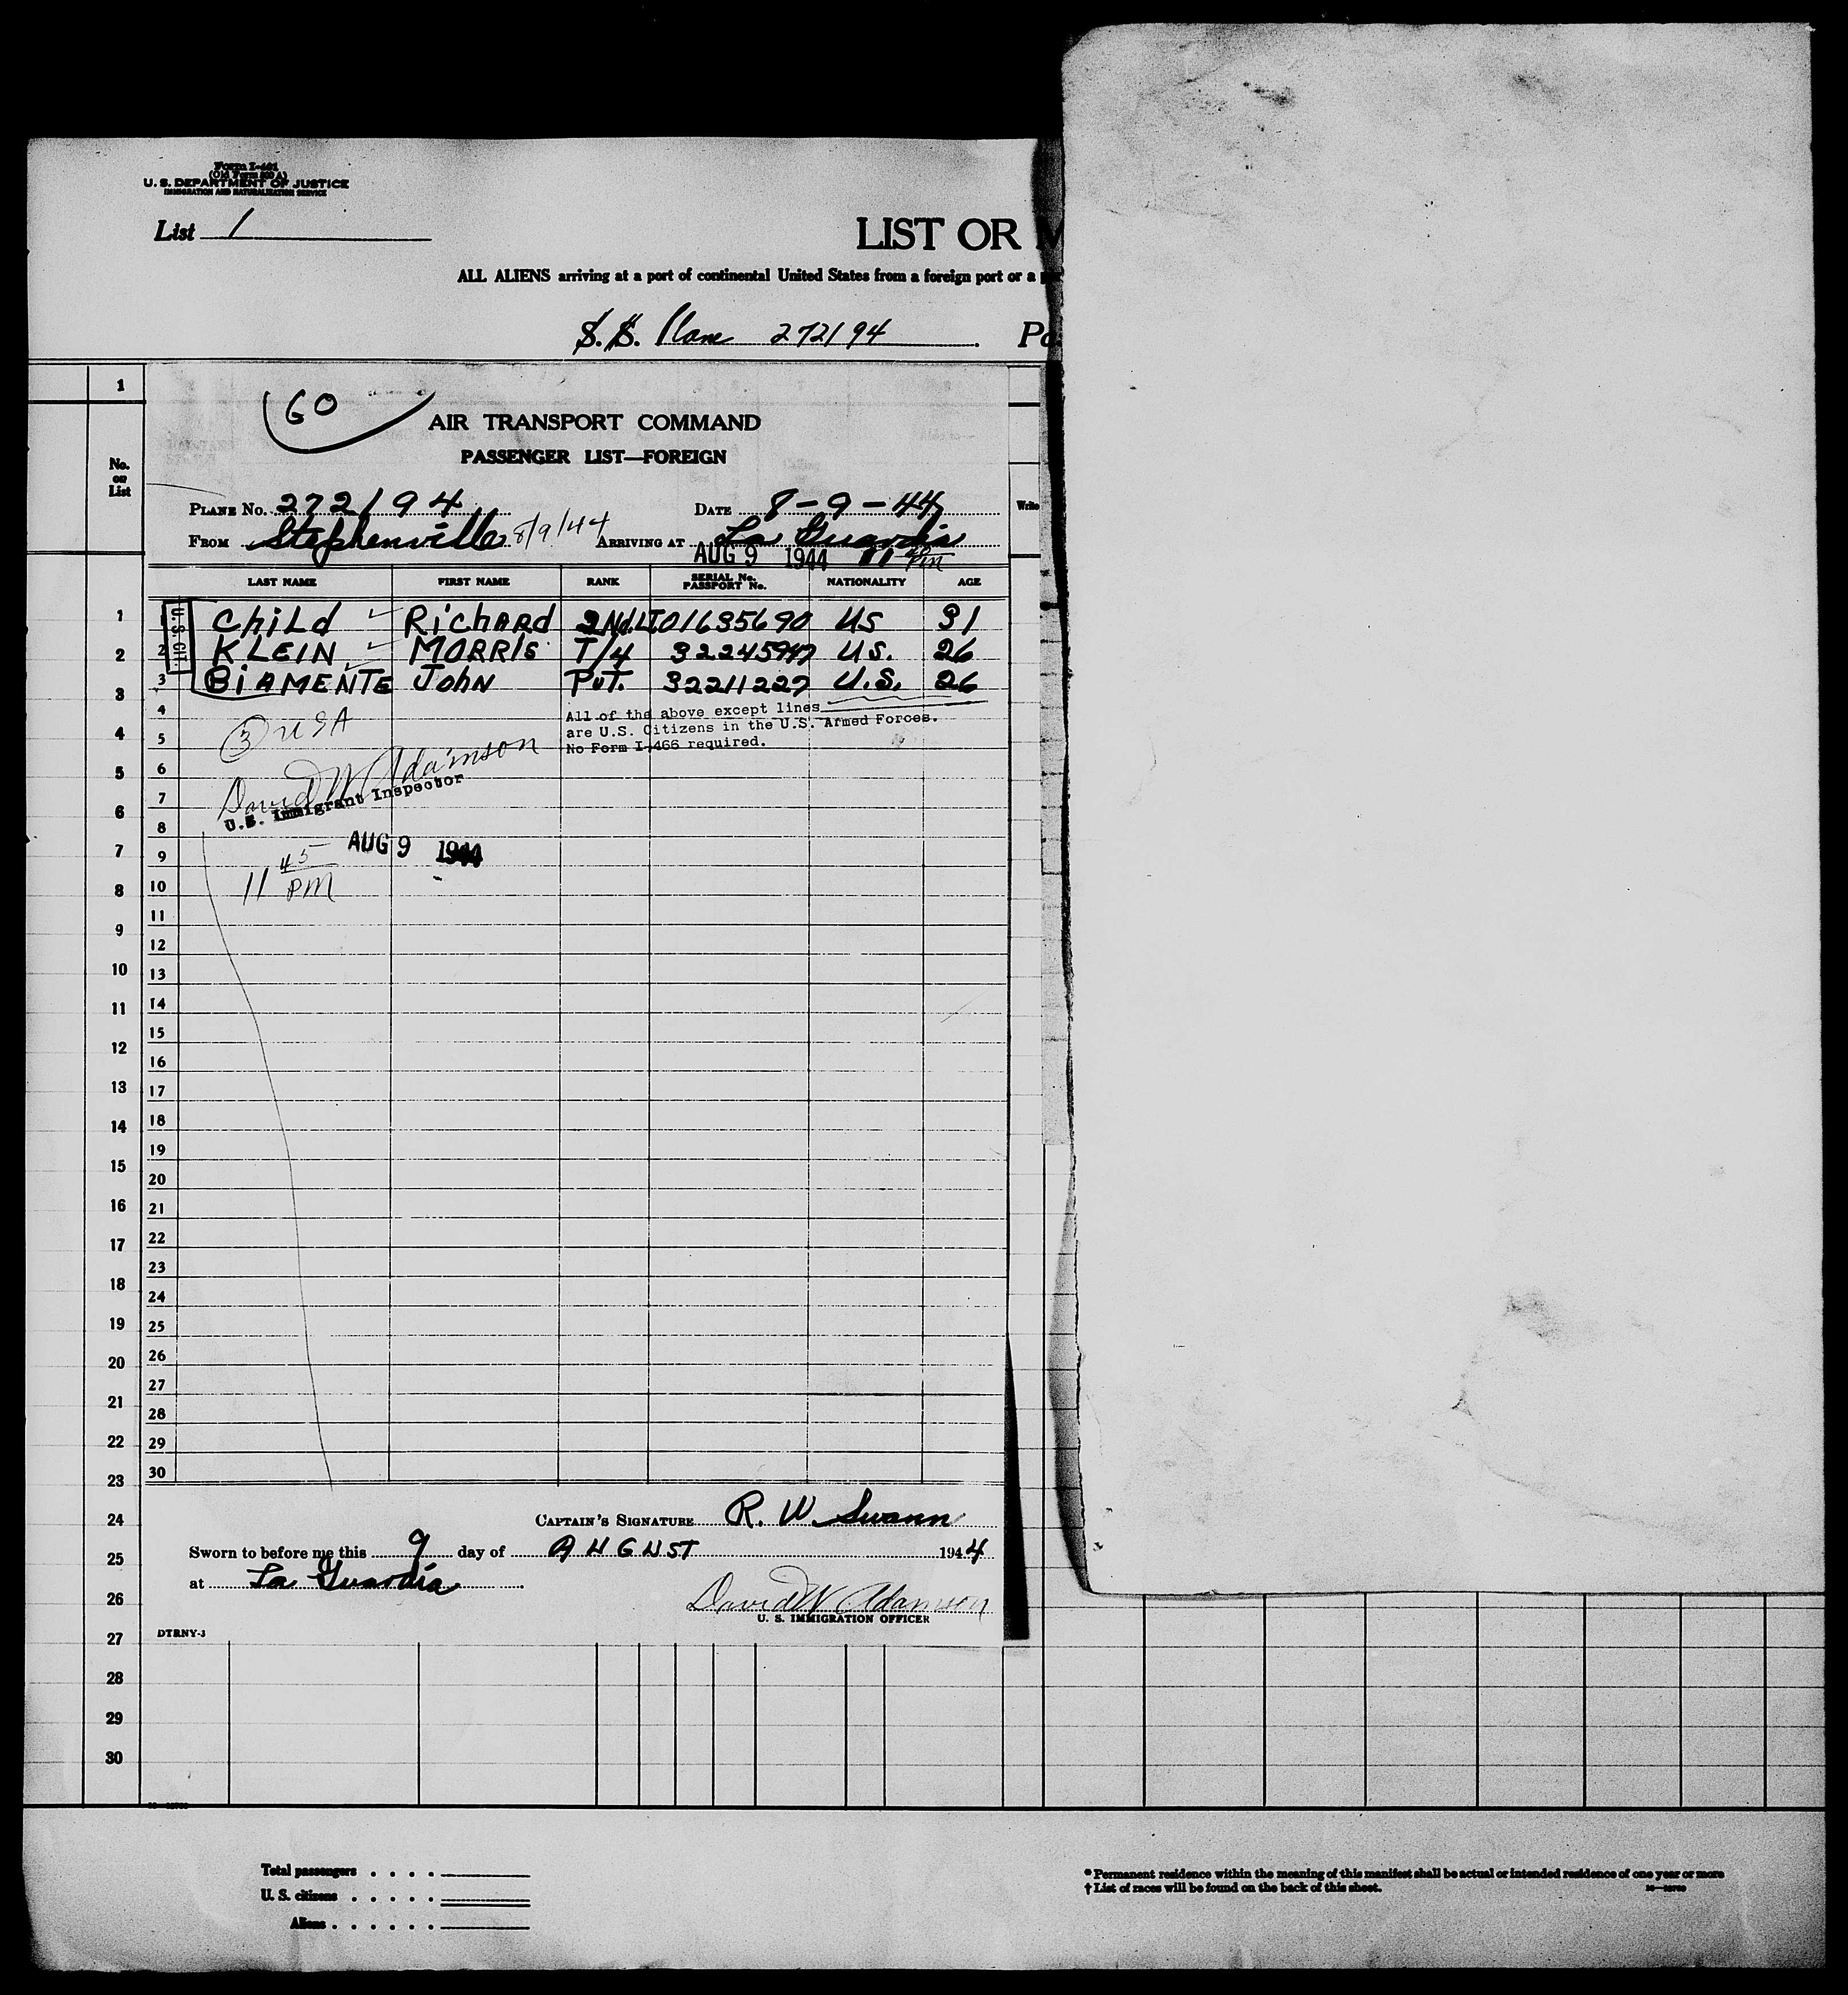 Form I-461
(Old Form 500 A)
U. S. DEPARTMENT OF JUSTICE
IMMIGRATION AND NATURALIZATION SERVICE
List 1
LIST OR M
ALL ALIENS arriving at a port of continental United States from a foreign port or a
S. S. Plane 272194
Po
1
No. on List
Write
60
AIR TRANSPORT COMMAND
PASSENGER LIST—FOREIGN
PLANE No. 272194 DATE 8-9-44
FROM Stephenville 8/9/44 ARRIVING AT La Guardia
AUG 9 1944 11 PM
LAST NAME FIRST NAME RANK SERIAL No. PASSPORT No. NATIONALITY AGE
U. S. CIT.
1 1 Child Richard 2Nd.LT 01635690 US 31
2 2 KLEIN MORRIS T/4 32245947 U.S. 26
3 3 BiAMENTE John PvT. 32211227 U.S. 26
All of the above except lines
are U.S. Citizens in the U.S. Armed Forces.
No Form I-466 required.
3 USA
David W Adamson
U.S. Immigrant Inspector
AUG 9 1944
11 45 PM
4 4
5 5
6
6 7
8
7 9
8 10
11
9 12
10 13
11 14
15
12 16
13 17
14 18
19
15 20
16 21
17 22
23
18 24
19 25
20 26
27
21 28
22 29
23 30
24 CAPTAIN'S SIGNATURE R. W. Swann
25 Sworn to before me this 9 day of AUGUST 1944
at La Guardia
26 David W Adamson
U. S. IMMIGRATION OFFICER
27 DTRNY-3
28
29
30
Total passengers . . . .
U. S. citizens . . . . .
Aliens . . . . . .
* Permanent residence within the meaning of this manifest shall be actual or intended residence of one year or more
† List of races will be found on the back of this sheet.